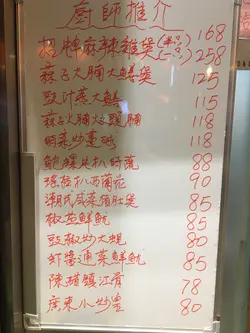 廚師推介
招牌麻辣雞煲(半只) 168
(一只) 258
蒜子大腩大鱔煲 125
豉汁蒸大鱔 115
蒜子大腩炆 115
炒薑 118
鮑 扒 88
瑤柱扒西蘭花 90
潮式咸菜豬肚煲 85
椒鹽鮮魷 85
豉椒炒大蜆 80
蝦醬通菜鮮魷 85
陳醋鎮江骨 78
廣東小炒皇 80